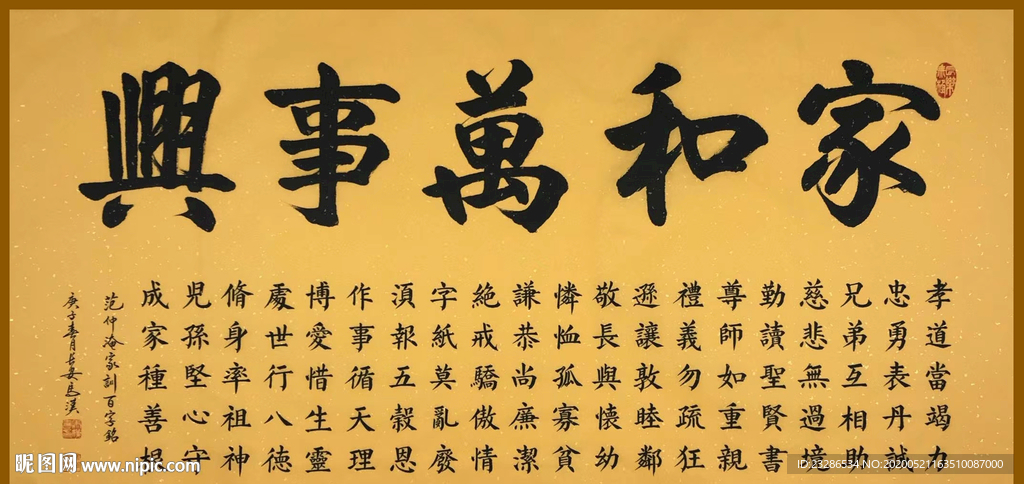 家和萬事興
孝道當竭力
忠勇表丹誠
兄弟互相助
慈悲無過境
勤讀聖賢書
尊師如重親
禮義勿疏狂
遜讓敦睦鄰
敬長與懷幼
憐恤孤寡貧
謙恭尚廉潔
絕戒驕傲情
字紙莫亂廢
須報五穀恩
作事循天理
博愛惜生靈
處世行八德
脩身率祖神
兒孫堅心守
成家種善根
范仲淹家訓百字銘
昵图网 www.nipic.com
ID:23286534 NO:20200521163510087000